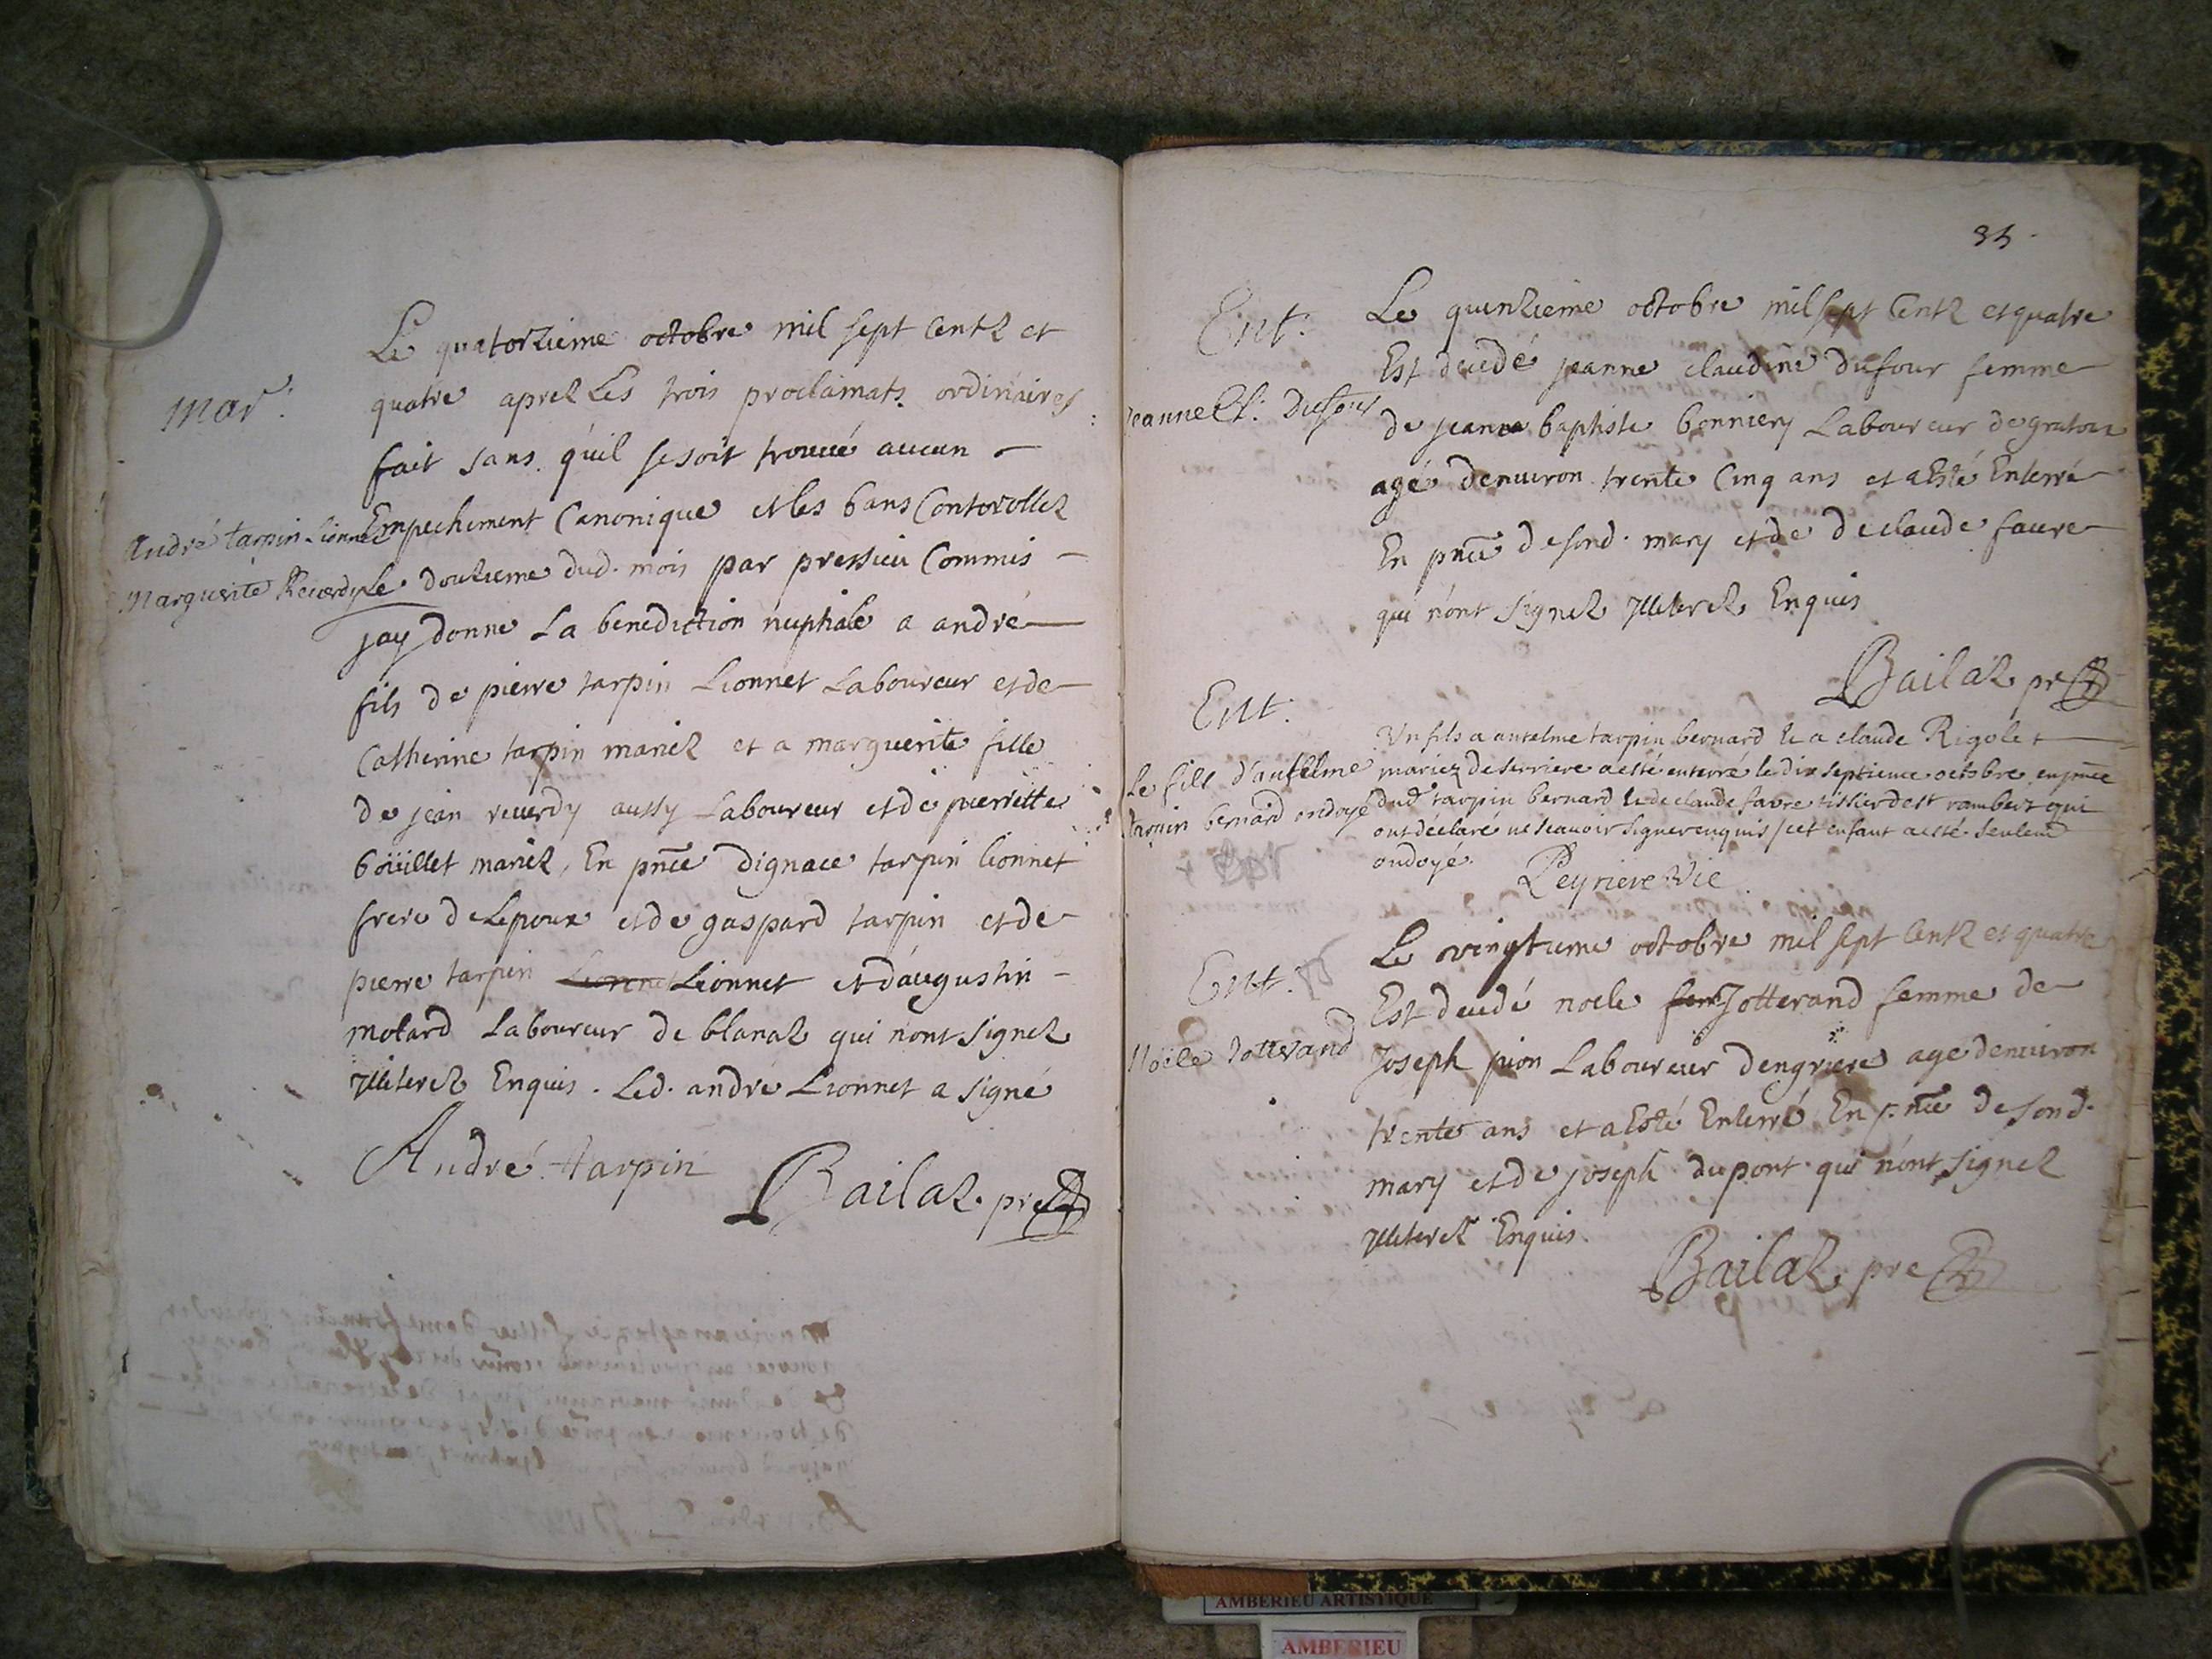 Mar.
André tarpin Lionnet
Marguerite Reverdy
Le quatorzieme octobre mil sept Centz et
quatre aprez Les trois proclamats. ordinaires
fait sans. quil se soit trouué aucun
Empechement Canonique et les bans Controllez
Le douzieme dud. mois par pressieu Commis
jay donne La benediction nuptiale a andré
fils de pierre tarpin Lionnet Laboureur et de
Catherine tarpin mariez et a marguerite fille
de jean reuerdy aussy Laboureur et de pierrette
boüillet mariez, En pnce dignace tarpin lionnet
frere de Lepoux et de gaspard tarpin et de
pierre tarpin Lionnet Lionnet et d'augustin
motard Laboureur de blanaz qui n'ont signez
Illiterez Enquis. Led. andré Lionnet a signé
André tarpin
Bailaz. pre
35.
Ent.
Jeanne Cl. Dufour
Le quinzieme octobre mil sept Centz et quatre
Est decedé jeanne claudine dufour femme
de jeanne baptiste bonniery Laboureur de gratoux
agé denuiron trente Cinq ans et a Esté Enterré
En pnce de sond. mary et de de claude faure
qui n'ont signez Illiterez Enquis
Bailaz pre
Ent.
Le fils d'antelme
tarpin bernard ondoyé
Un fils a antelme tarpin bernard & a claude Rigolet
mariez de serriere a esté enterré le dix septieme octobre en pnce
dud tarpin bernard & de claude favre tissier de st rambert qui
ont déclaré ne scauoir signer enquis / cet enfant a esté seulemt
ondoyé.
Peyriere Vic.
Ent.
Noële Jotterand
Le vingtieme octobre mil sept Centz et quatre
Est decedé noele fem Jotterand femme de
Joseph pion Laboureur dengriere age denuiron
trente ans et a Esté Enterré En pnce de sond.
mary et de joseph dupont qui n'ont signez
Illiterez Enquis.
Bailaz, pre
AMBERIEU ARTISTIQUE
AMBERIEU